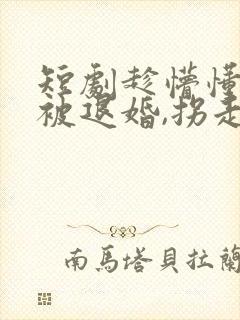 短劇趁懵懂
被退婚,拐走
南馬塔貝拉蘭